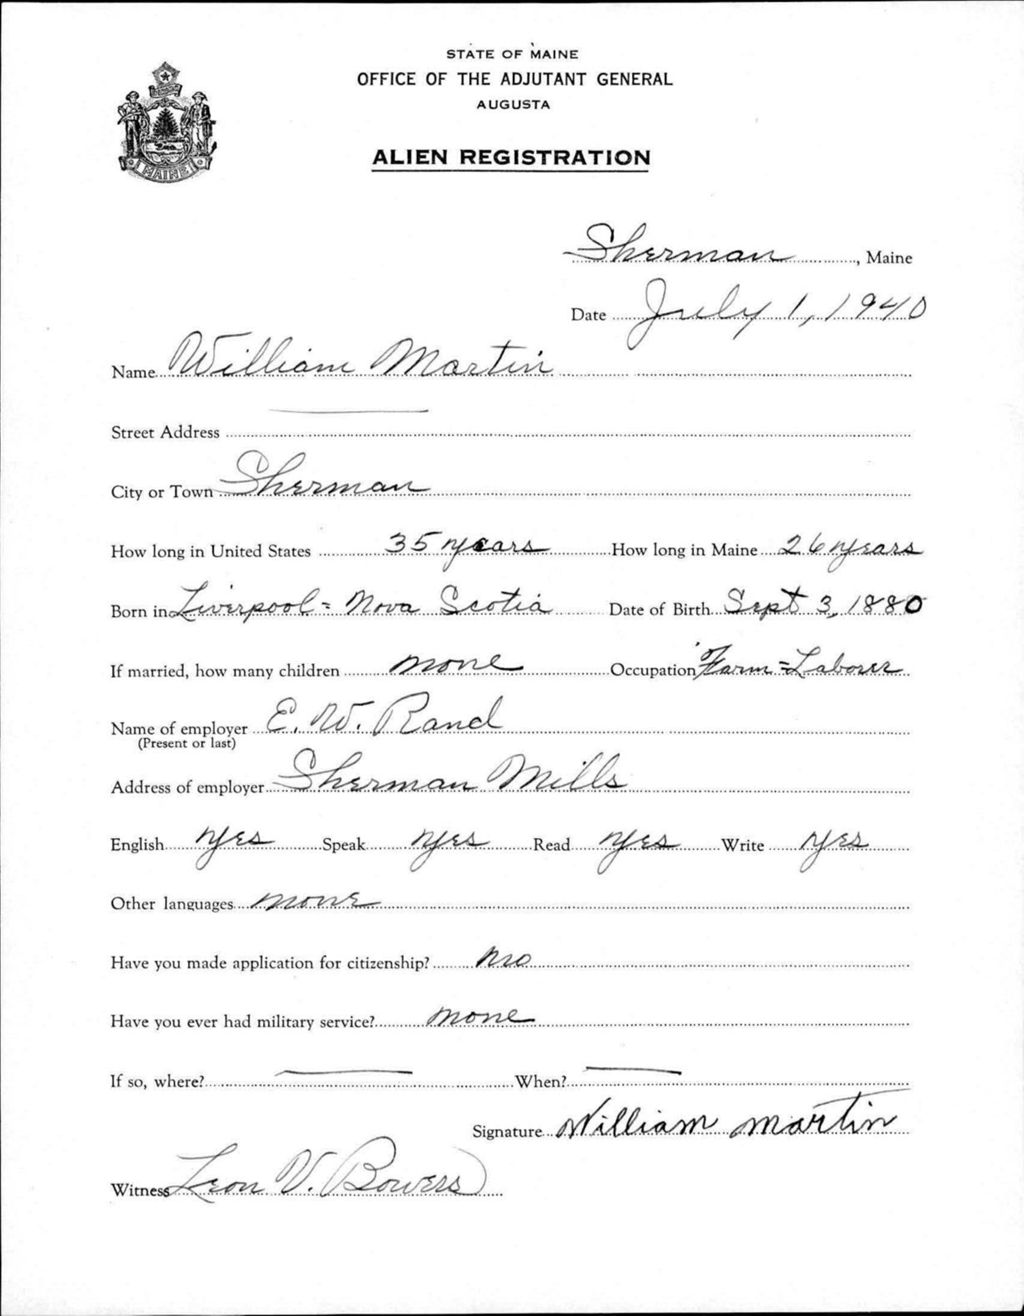 STATE OF MAINE
OFFICE OF THE ADJUTANT GENERAL
AUGUSTA
ALIEN REGISTRATION
MAINE
Sherman, Maine
Date July 1, 1940
Name William Martin
Street Address
City or Town Sherman
How long in United States 35 years How long in Maine 26 years
Born in Liverpool = Nova Scotia Date of Birth Sept 3, 1880
If married, how many children none Occupation Farm = Laborer
Name of employer E. W. Rand
(Present or last)
Address of employer Sherman Mills
English yes Speak yes Read yes Write yes
Other languages none
Have you made application for citizenship? no
Have you ever had military service? none
If so, where? When?
Signature William Martin
Witness Leon V. Bowers